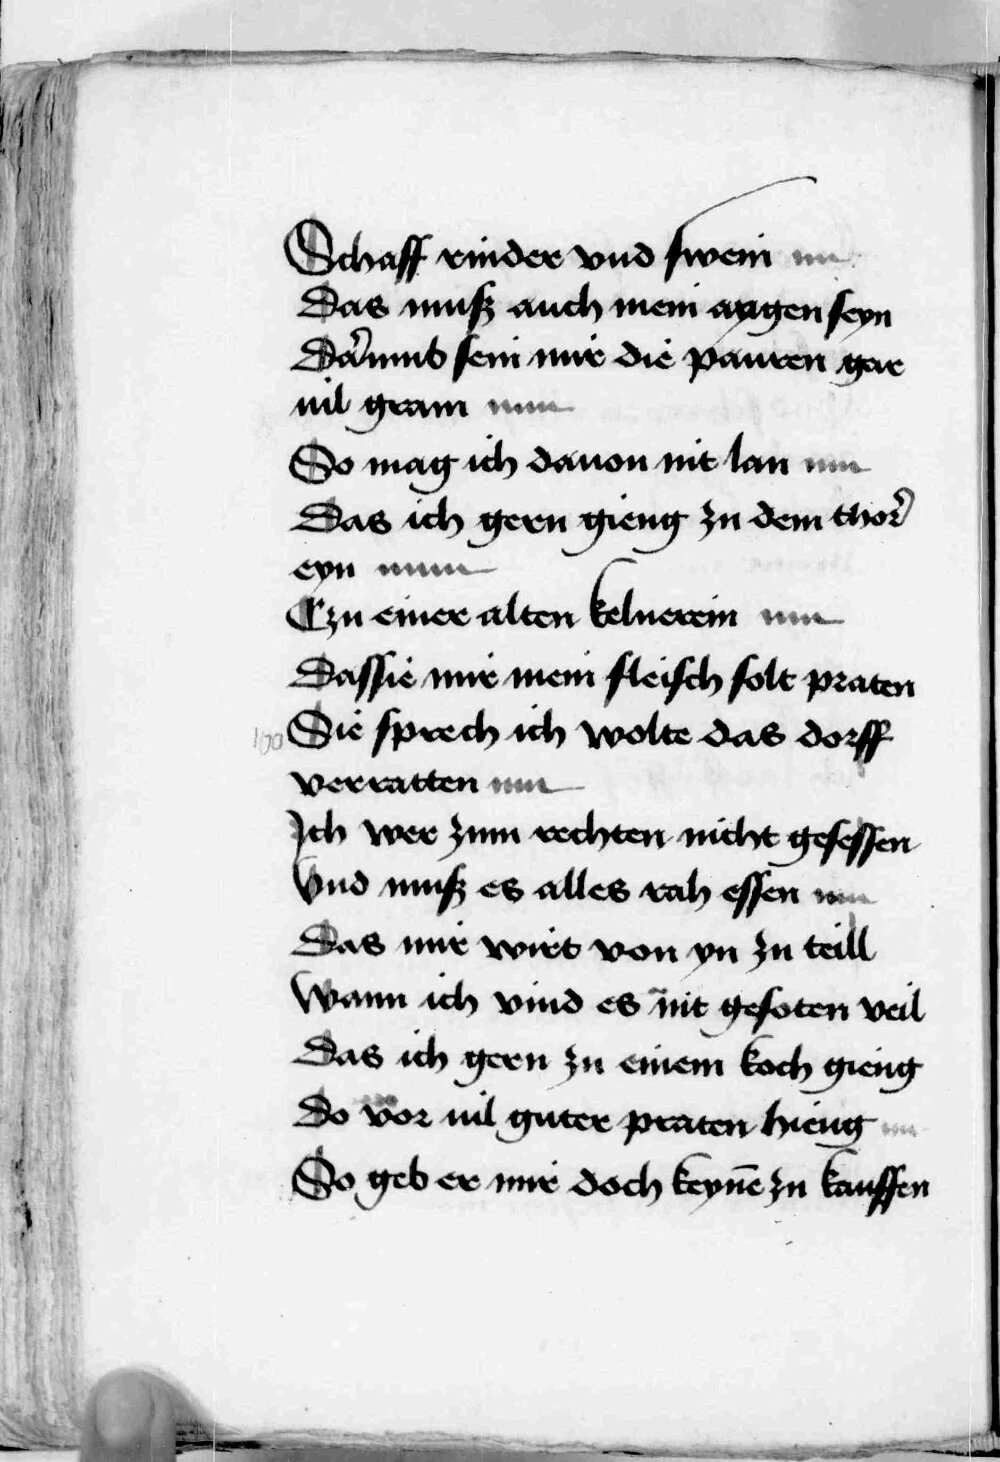 Schaff rinder vnd swein
Das musz auch mein aygen seyn
Darumb sein mir die pauren gar
uil gram
So mag ich dauon nit lan
Das ich gern gieng zu dem thor
eyn
Czu einer alten kelnerein
Dassie mir mein fleisch solt praten
100 Sie sprech ich wolte das dorff
verratten
Ich wer zum rechten nicht gesessen
Vnd musz es alles rah essen
Das mir wirt von yn zu teill
Wann ich vind es nit gesoten veil
Das ich gern zu einem koch gieng
Do vor uil guter praten hieng
So geb er mir doch keynē zu kauffen